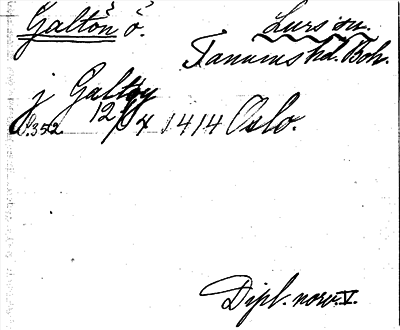 Galtön ö. Lurs sn.
Tanums hd. Boh.
j Galtøy
S.352 12/4 1414 Oslo.
Dipl. norv. V.